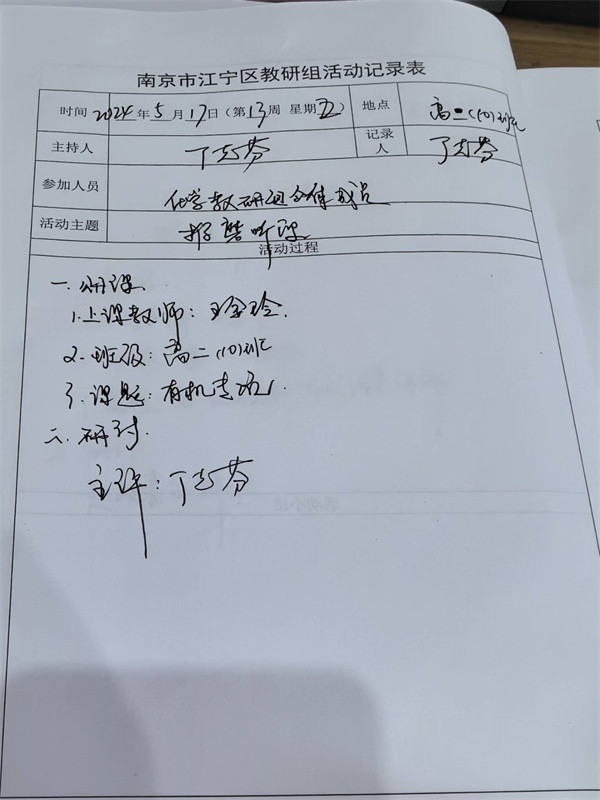 南京市江宁区教研组活动记录表
时间 2024年5月17日(第13周 星期五) 地点 高二(10)班
主持人 丁志芬 记录人 丁志芬
参加人员 化学教研组全体成员
活动主题 听课
活动过程
一.公开课
1.上课教师:玲.
2.班级:高二(10)班
3.课题:有机专题1.
二.研讨.
主评:丁志芬